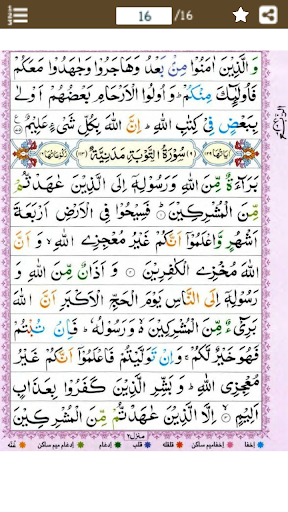 16 /16
وَالَّذِيْنَ اٰمَنُوْا مِنْۢ بَعْدُ وَهَاجَرُوْا وَجٰهَدُوْا مَعَكُمْ
فَاُولٰٓئِكَ مِنْكُمْ ؕ وَاُولُوا الْاَرْحَامِ بَعْضُهُمْ اَوْلٰى
بِبَعْضٍ فِيْ كِتٰبِ اللّٰهِ ؕ اِنَّ اللّٰهَ بِكُلِّ شَيْءٍ عَلِيْمٌ
سُوْرَةُ التَّوْبَةِ مَدَنِيَّةٌ
بَرَآءَةٌ مِّنَ اللّٰهِ وَرَسُوْلِهٖٓ اِلَى الَّذِيْنَ عٰهَدْتُّمْ
مِّنَ الْمُشْرِكِيْنَ ؕ فَسِيْحُوْا فِي الْاَرْضِ اَرْبَعَةَ
اَشْهُرٍ وَّاعْلَمُوْٓا اَنَّكُمْ غَيْرُ مُعْجِزِي اللّٰهِ ۙ وَاَنَّ
اللّٰهَ مُخْزِي الْكٰفِرِيْنَ وَاَذَانٌ مِّنَ اللّٰهِ وَ
رَسُوْلِهٖٓ اِلَى النَّاسِ يَوْمَ الْحَجِّ الْاَكْبَرِ اَنَّ اللّٰهَ
بَرِيْٓءٌ مِّنَ الْمُشْرِكِيْنَ ۙ وَرَسُوْلُهٗ ؕ فَاِنْ تُبْتُمْ
فَهُوَ خَيْرٌ لَّكُمْ ۚ وَاِنْ تَوَلَّيْتُمْ فَاعْلَمُوْٓا اَنَّكُمْ غَيْرُ
مُعْجِزِي اللّٰهِ ؕ وَبَشِّرِ الَّذِيْنَ كَفَرُوْا بِعَذَابٍ
اَلِيْمٍ ۙ اِلَّا الَّذِيْنَ عٰهَدْتُّمْ مِّنَ الْمُشْرِكِيْنَ
منزل ٢
اخفا اخفا میم ساکن قلقله قلب ادغام ادغام میم ساکن غنه